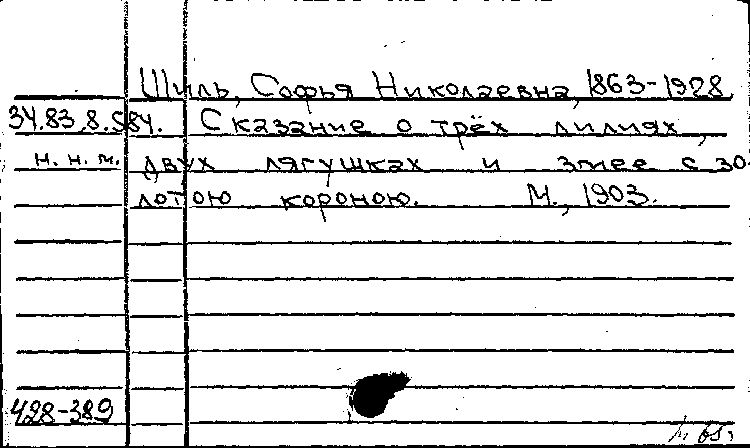 Шиль, Софья Николаевна, 1863-1928.
34.83.8.584. Сказание о трёх лилиях,
н.н.м. двух лягушках и змее с зо-
лотою короною. М., 1903.
428-389